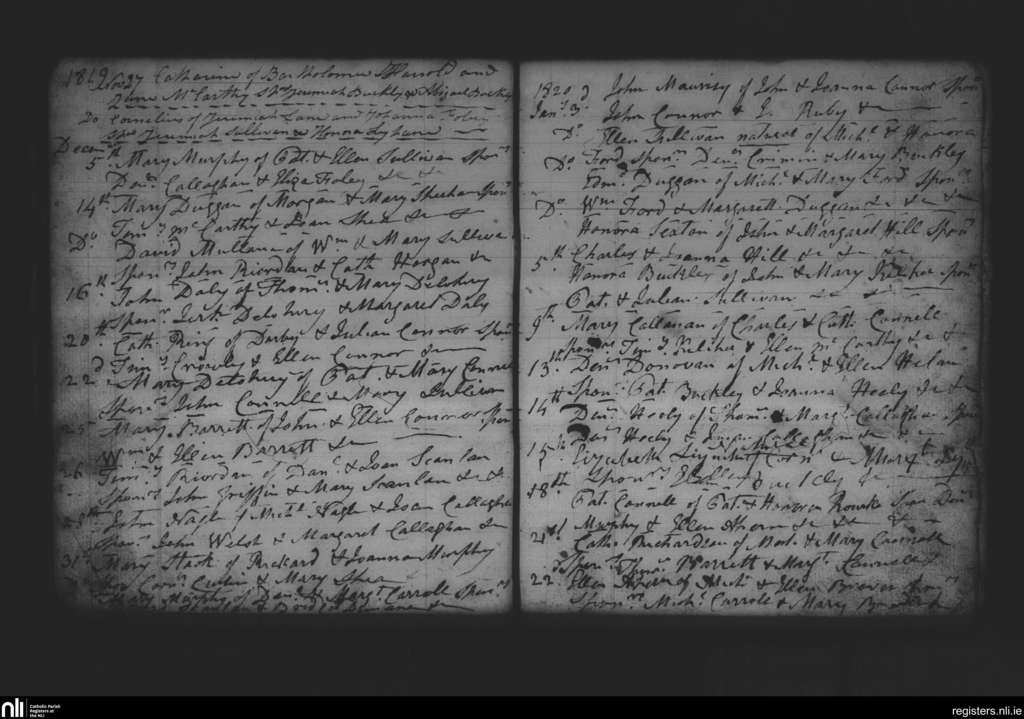 1819
Novr 27 Catharine of Bartholomew Harrold and
Jane McCarthy Sprs Jeremiah Buckley & Abigail Buckley
Do Cornelius of Jeremiah Lane and Johanna Foley
Sprs Jeremiah Sullivan & Honora Lyhane
Decemr
5th Mary Murphy of Pat. & Ellen Sullivan Sponrs
Danl. Callaghan & Eliza Foley &c &c
14th Mary Duggan of Morgan & Mary Sheehan Sponrs
Timy. McCarthy & Joan Shea &c
Do David Mullane of Wm & Mary Sulliva
Sponrs John Riordan & Cath Horgan &c
16th John Daly of Thoms. & Mary Delohry
Sponrs Jerh. Delohry & Margaret Daly
20th Cath Ring of Darby & Julian Connor Sponrs
Timy. Crowly & Ellen Connor &c
22d Mary Delohery of Pat. & Mary Connell
Sponrs John Connell & Mary Sullivan
25th Mary Barrett of John & Ellen Connor Sponrs
Wm & Ellen Barrett &c
26 Timy. Riordan of Danl. & Joan Scanlan
Sponrs John Griffin & Mary Scanlan &c &c
28th John Nagle of Michl Nagle & Joan Callaghan
Sponrs John Welsh & Margaret Callaghan &c
31st Mary Hack of Rickard & Joanna Murphy
Corns. & Mary Shea
Mary Murphy of Danl. & Margt. Carroll Sponrs
1820
Janr. 3d John Mauricy of John & Joanna Connor Sponrs
John Connor & J. Ruby &c
Do Ellen Sullivan natural of Michl & Hanora
Ford Sponrs Denis Crimin & Mary Buckley
Do Edmd. Duggan of Michl. & Mary Ford Sponrs
Wm Ford & Margarett Duggan &c &c &c
Do Honora Seaton of John & Margaret Hill Sponrs
Charles & Joanna Hill &c &c &c
5th Hanora Buckley of John & Mary Keliher Sponrs
Pat. & Julian Sullivan &c &c
9th Mary Callanan of Charles & Cath. Connell
Sponrs Timy. Keliher & Ellen McCarthy &c &
13th Denis Donovan of Michl. & Ellen Helan
Sponrs Pat. Buckley & Joanna Healy &c &c
14th Danl. Healy of Thoms. & Mary Callaghan Sponrs
Danl Healy &
15th Elizabeth Corns & Margt.
Sponrs Buckley &c
18th Pat. Connell of Pat. & Honoran Rourke Spon Denis
Murphy & Ellen Ahern &c &c &c
21st Cath. Richardson of Bart. & Mary Connell
Sponrs Thoms. Barrett & Margt. Connell &
22d Ellen of Michl & Ellen Brown
Sponrs Michl. Carroll & Mary
nli
Catholic Parish
Registers at
the NLI
registers.nli.ie